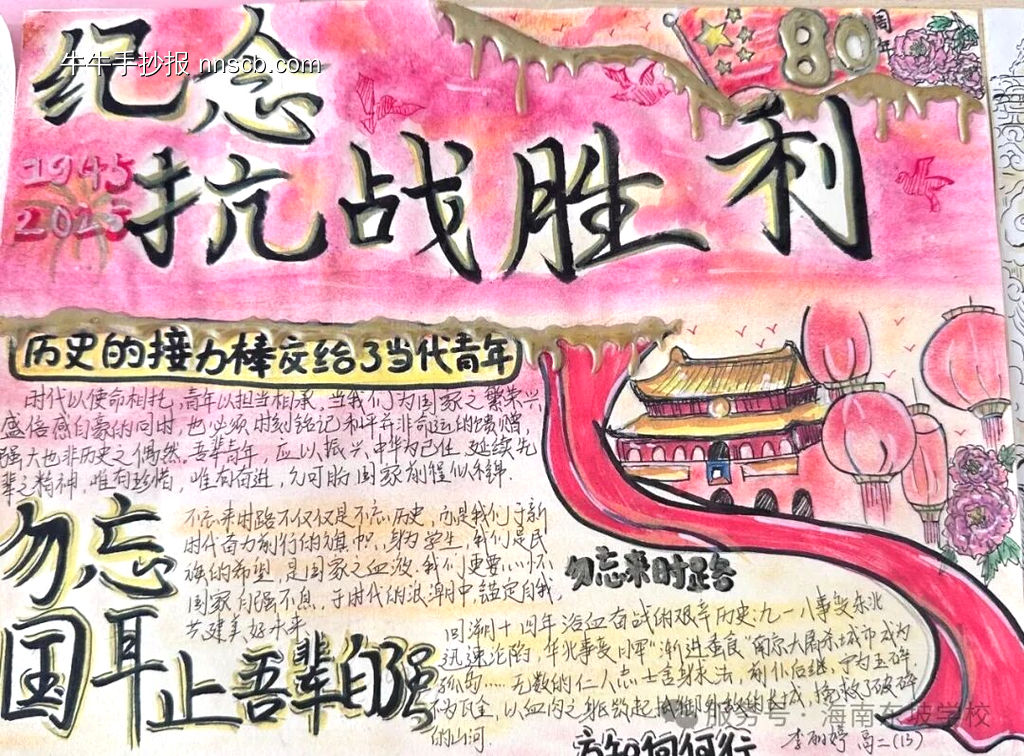 牛牛手抄报 nnscb.com
纪念
80
周年
1945
2025
抗战胜利
历史的接力棒交给了当代青年
时代以使命相托,青年以担当相承,当我们为国家之繁荣兴
盛倍感自豪的同时,也必须时刻铭记和平并非命运的馈赠,
强大也非历史之偶然。吾辈青年,应以振兴中华为己任,延续先
辈之精神,唯有珍惜,唯有奋进,方可盼国家前程似锦.
勿忘
国耻
吾辈自强
不忘来时路不仅仅是不忘历史,而是我们于新
时代奋力前行的旗帜.身为学生,我们是民
族的希望,是国家之血液.我们更要心怀
国家,自强不息,于时代的浪潮中,锚定自我,
共建美好未来
勿忘来时路
回溯十四年浴血奋战的艰辛历史:九一八事变东北
迅速沦陷,华北事变日军"渐进蚕食"南京大屠杀城市成为
孤岛……无数的仁人志士舍身求法,前仆后继,宁为玉碎,
不为瓦全,以血肉之躯筑起抵御外敌的长城,拯救了破碎
的山河.
方知向何行
服务号·海南东坡学校
高二(13)